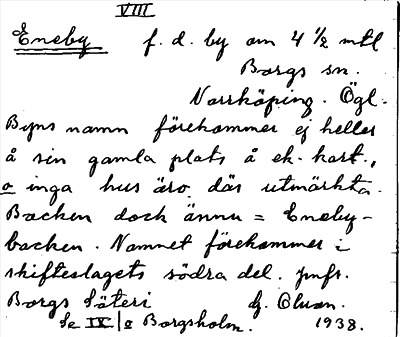 VIII
Eneby f. d. by om 4 1/2 mtl
Borgs sn.
Norrköping. Ögl.
Byns namn förekommer ej heller
å sin gamla plats å ek. kart.,
o inga hus äro där utmärkta.
Backen dock ännu = Eneby-
backen. Namnet förekommer i
skifteslagets södra del. jmfr.
Borgs Säteri
Se IX/a Borgsholm. 1938.